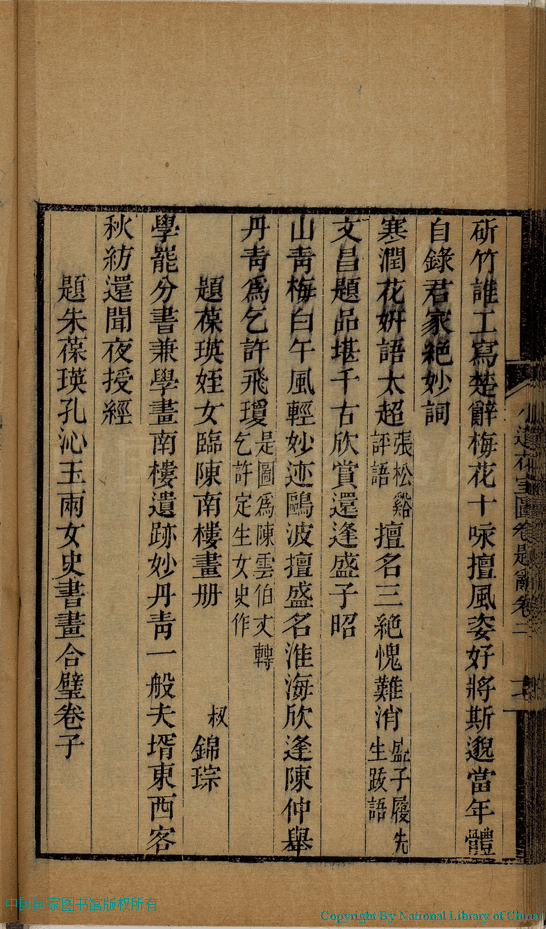 斫竹誰工寫楚辭梅花十咏擅風姿好將斯邈當年體
自錄君家絶妙詞
寒潤花妍語太超張松谿評語擅名三絶愧難消盛子履先生跋語
文昌題品堪千古欣賞還逢盛子昭
山靑梅白午風輕妙迹鷗波擅盛名淮海欣逢陳仲舉
丹靑爲乞許飛瓊是圖爲陳雲伯丈轉乞許定生女史作
題葆瑛姪女臨陳南樓畫册
叔 錦琮
學罷分書兼學畫南樓遺跡妙丹靑一般夫壻東西客
秋紡還聞夜授經
題朱葆瑛孔沁玉兩女史書畫合璧卷子
圖卷題辭卷二
中国国家图书馆版权所有
Copyright By National Library of China